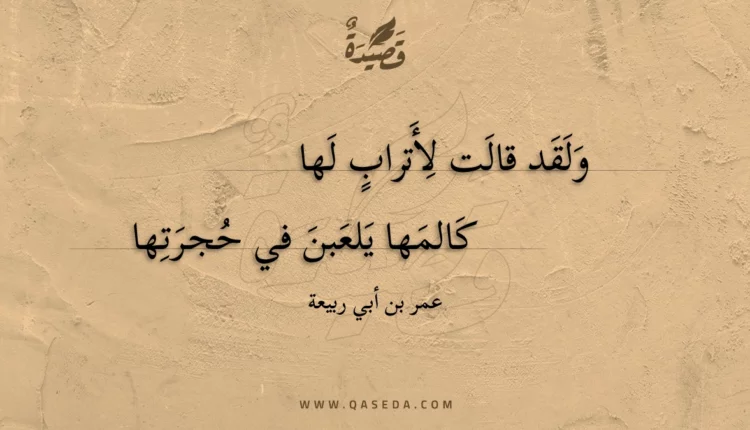 قَصِيدَةٌ
وَلَقَد قالَت لِأَترابٍ لَها
كَالمَها يَلعَبنَ في حُجرَتِها
عمر بن أبي ربيعة
WWW.QASEDA.COM